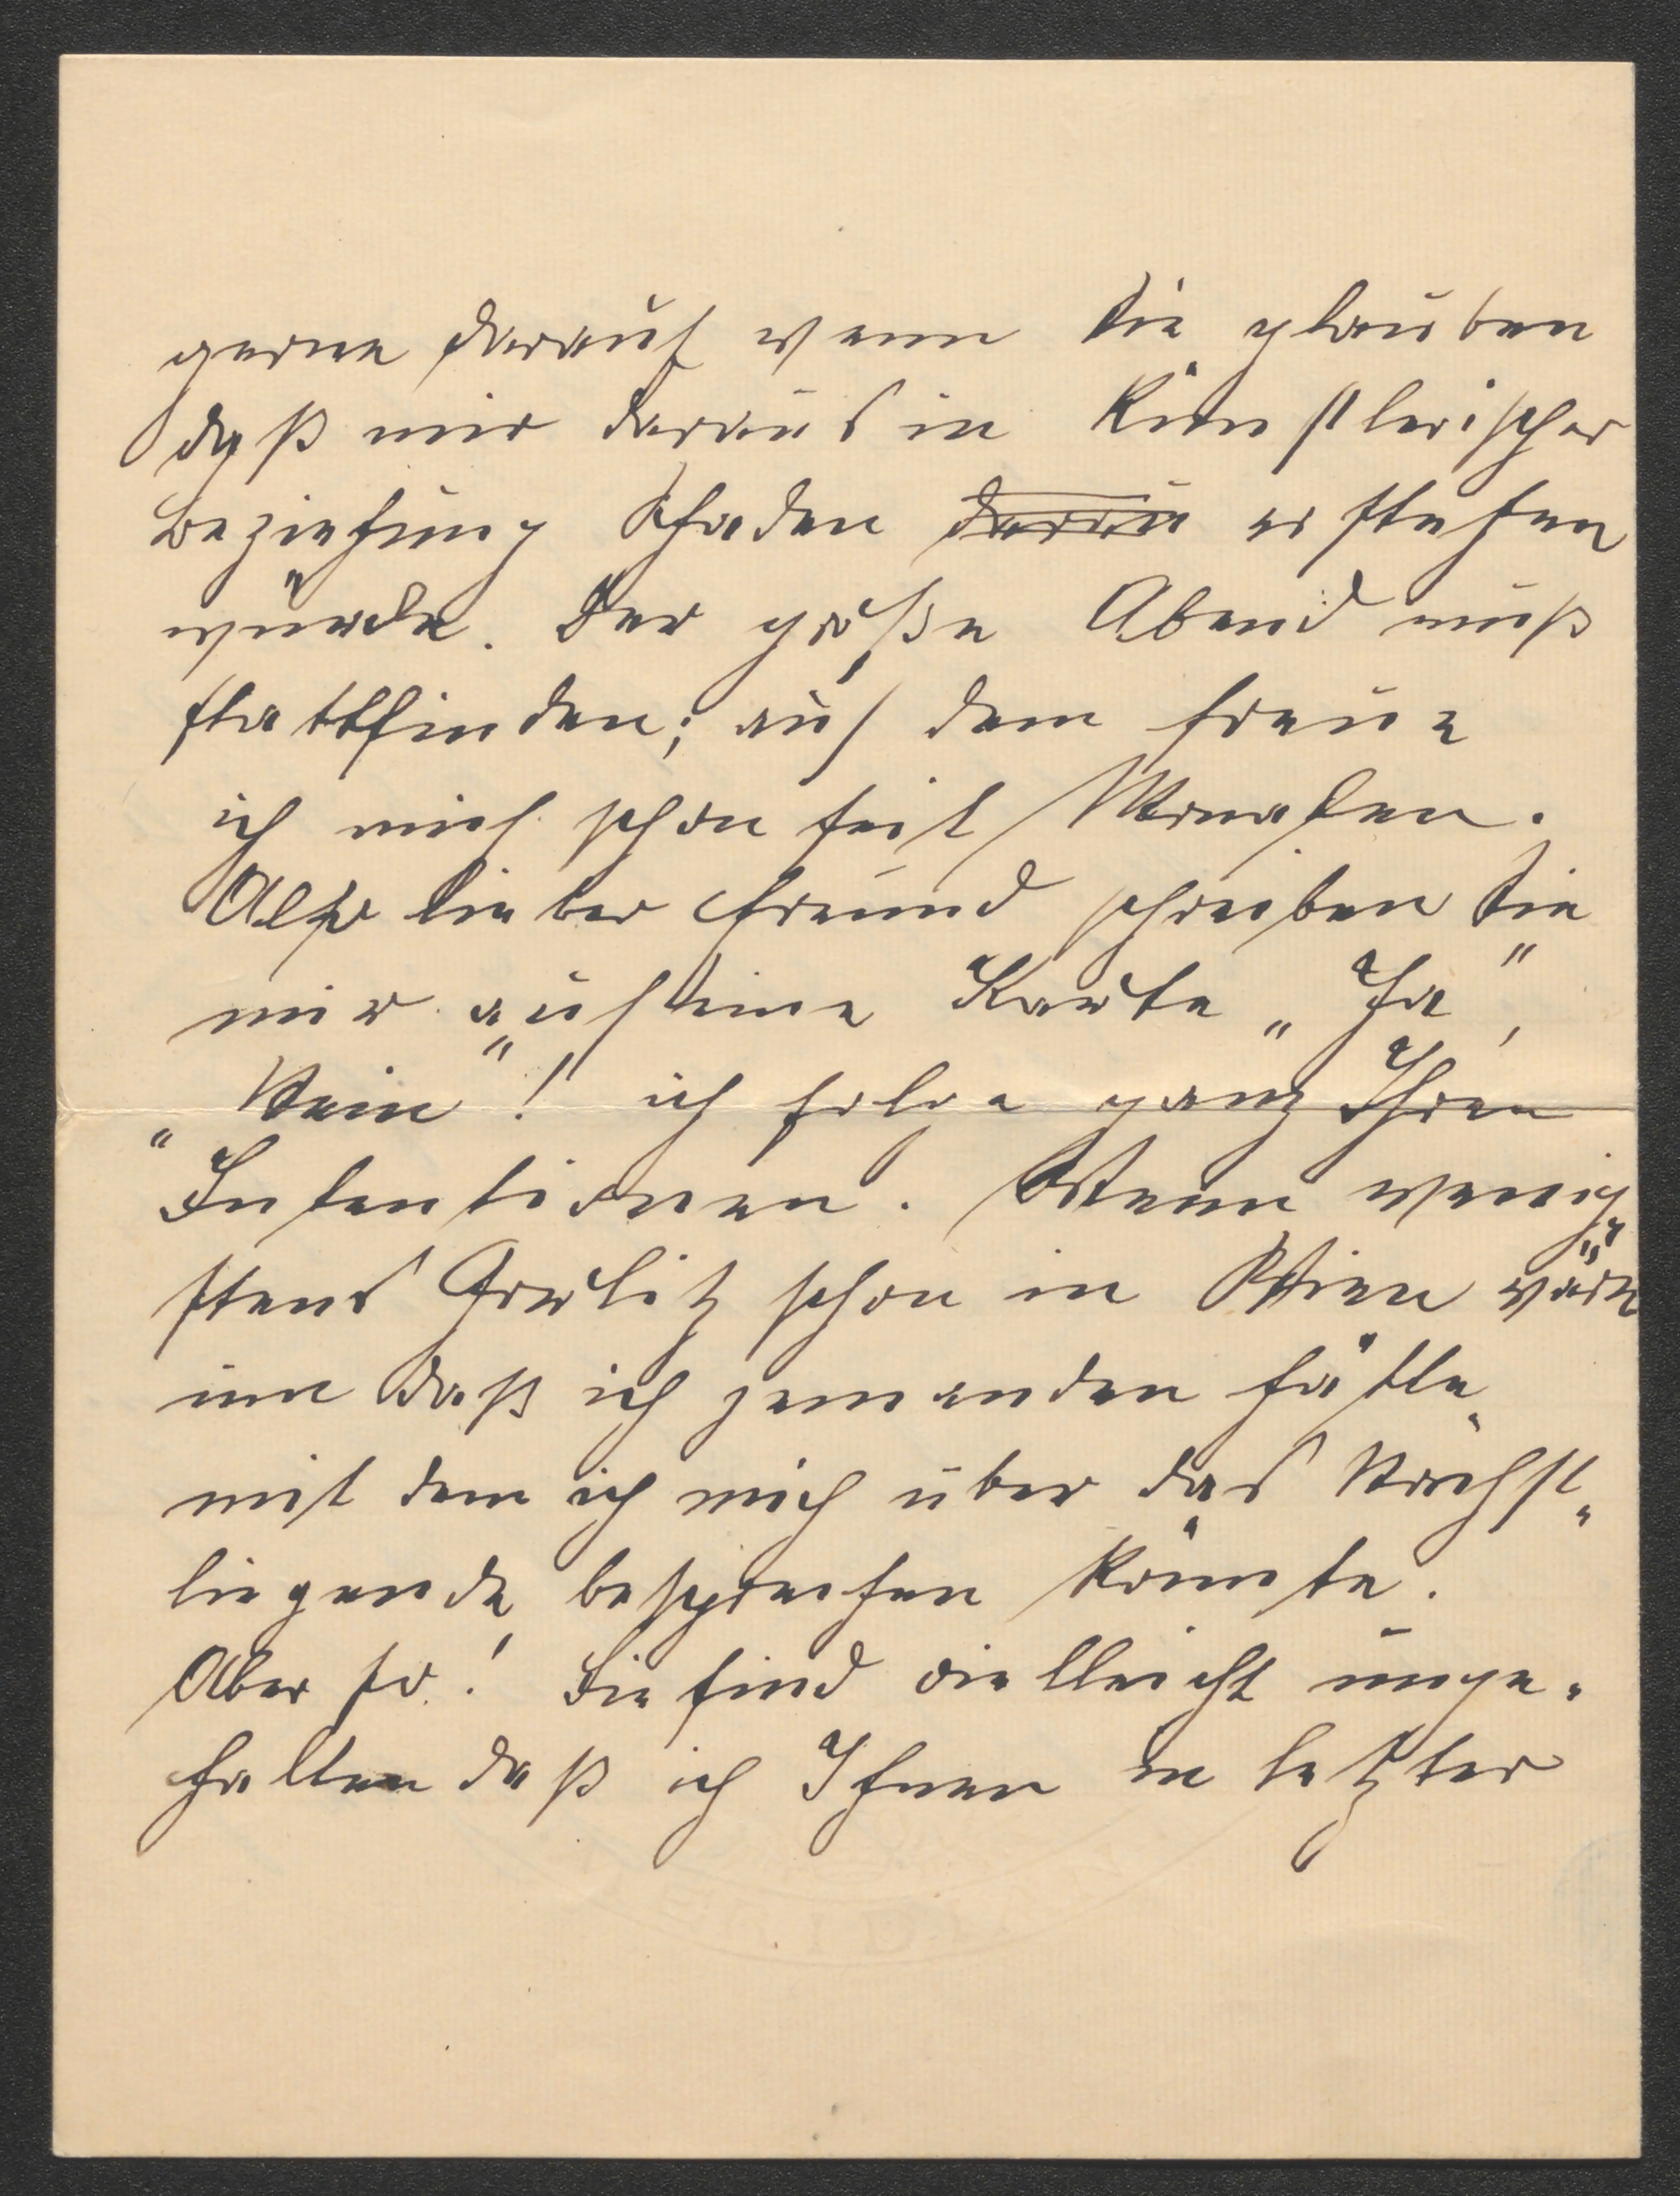 gerne darauf wenn Sie glauben
daß mir daraus in künstlerischer
Beziehung Schaden darau erstehen
würde. Der große Abend muß
stattfinden; auf dem freue
ich mich schon seit Monaten.
Also lieber Freund schreiben Sie
mir auf eine Karte „Ja",
„Nein"! ich folge ganz Ihren
Intentionen. Wenn wenig„
stens Grelitz schon in Wien wäre
um daß ich jemanden hätte
mit dem ich mich über das Nächst„
liegende besprechen könnte.
Aber so! Sie sind vielleicht unge„
halten daß ich Ihnen in letzter